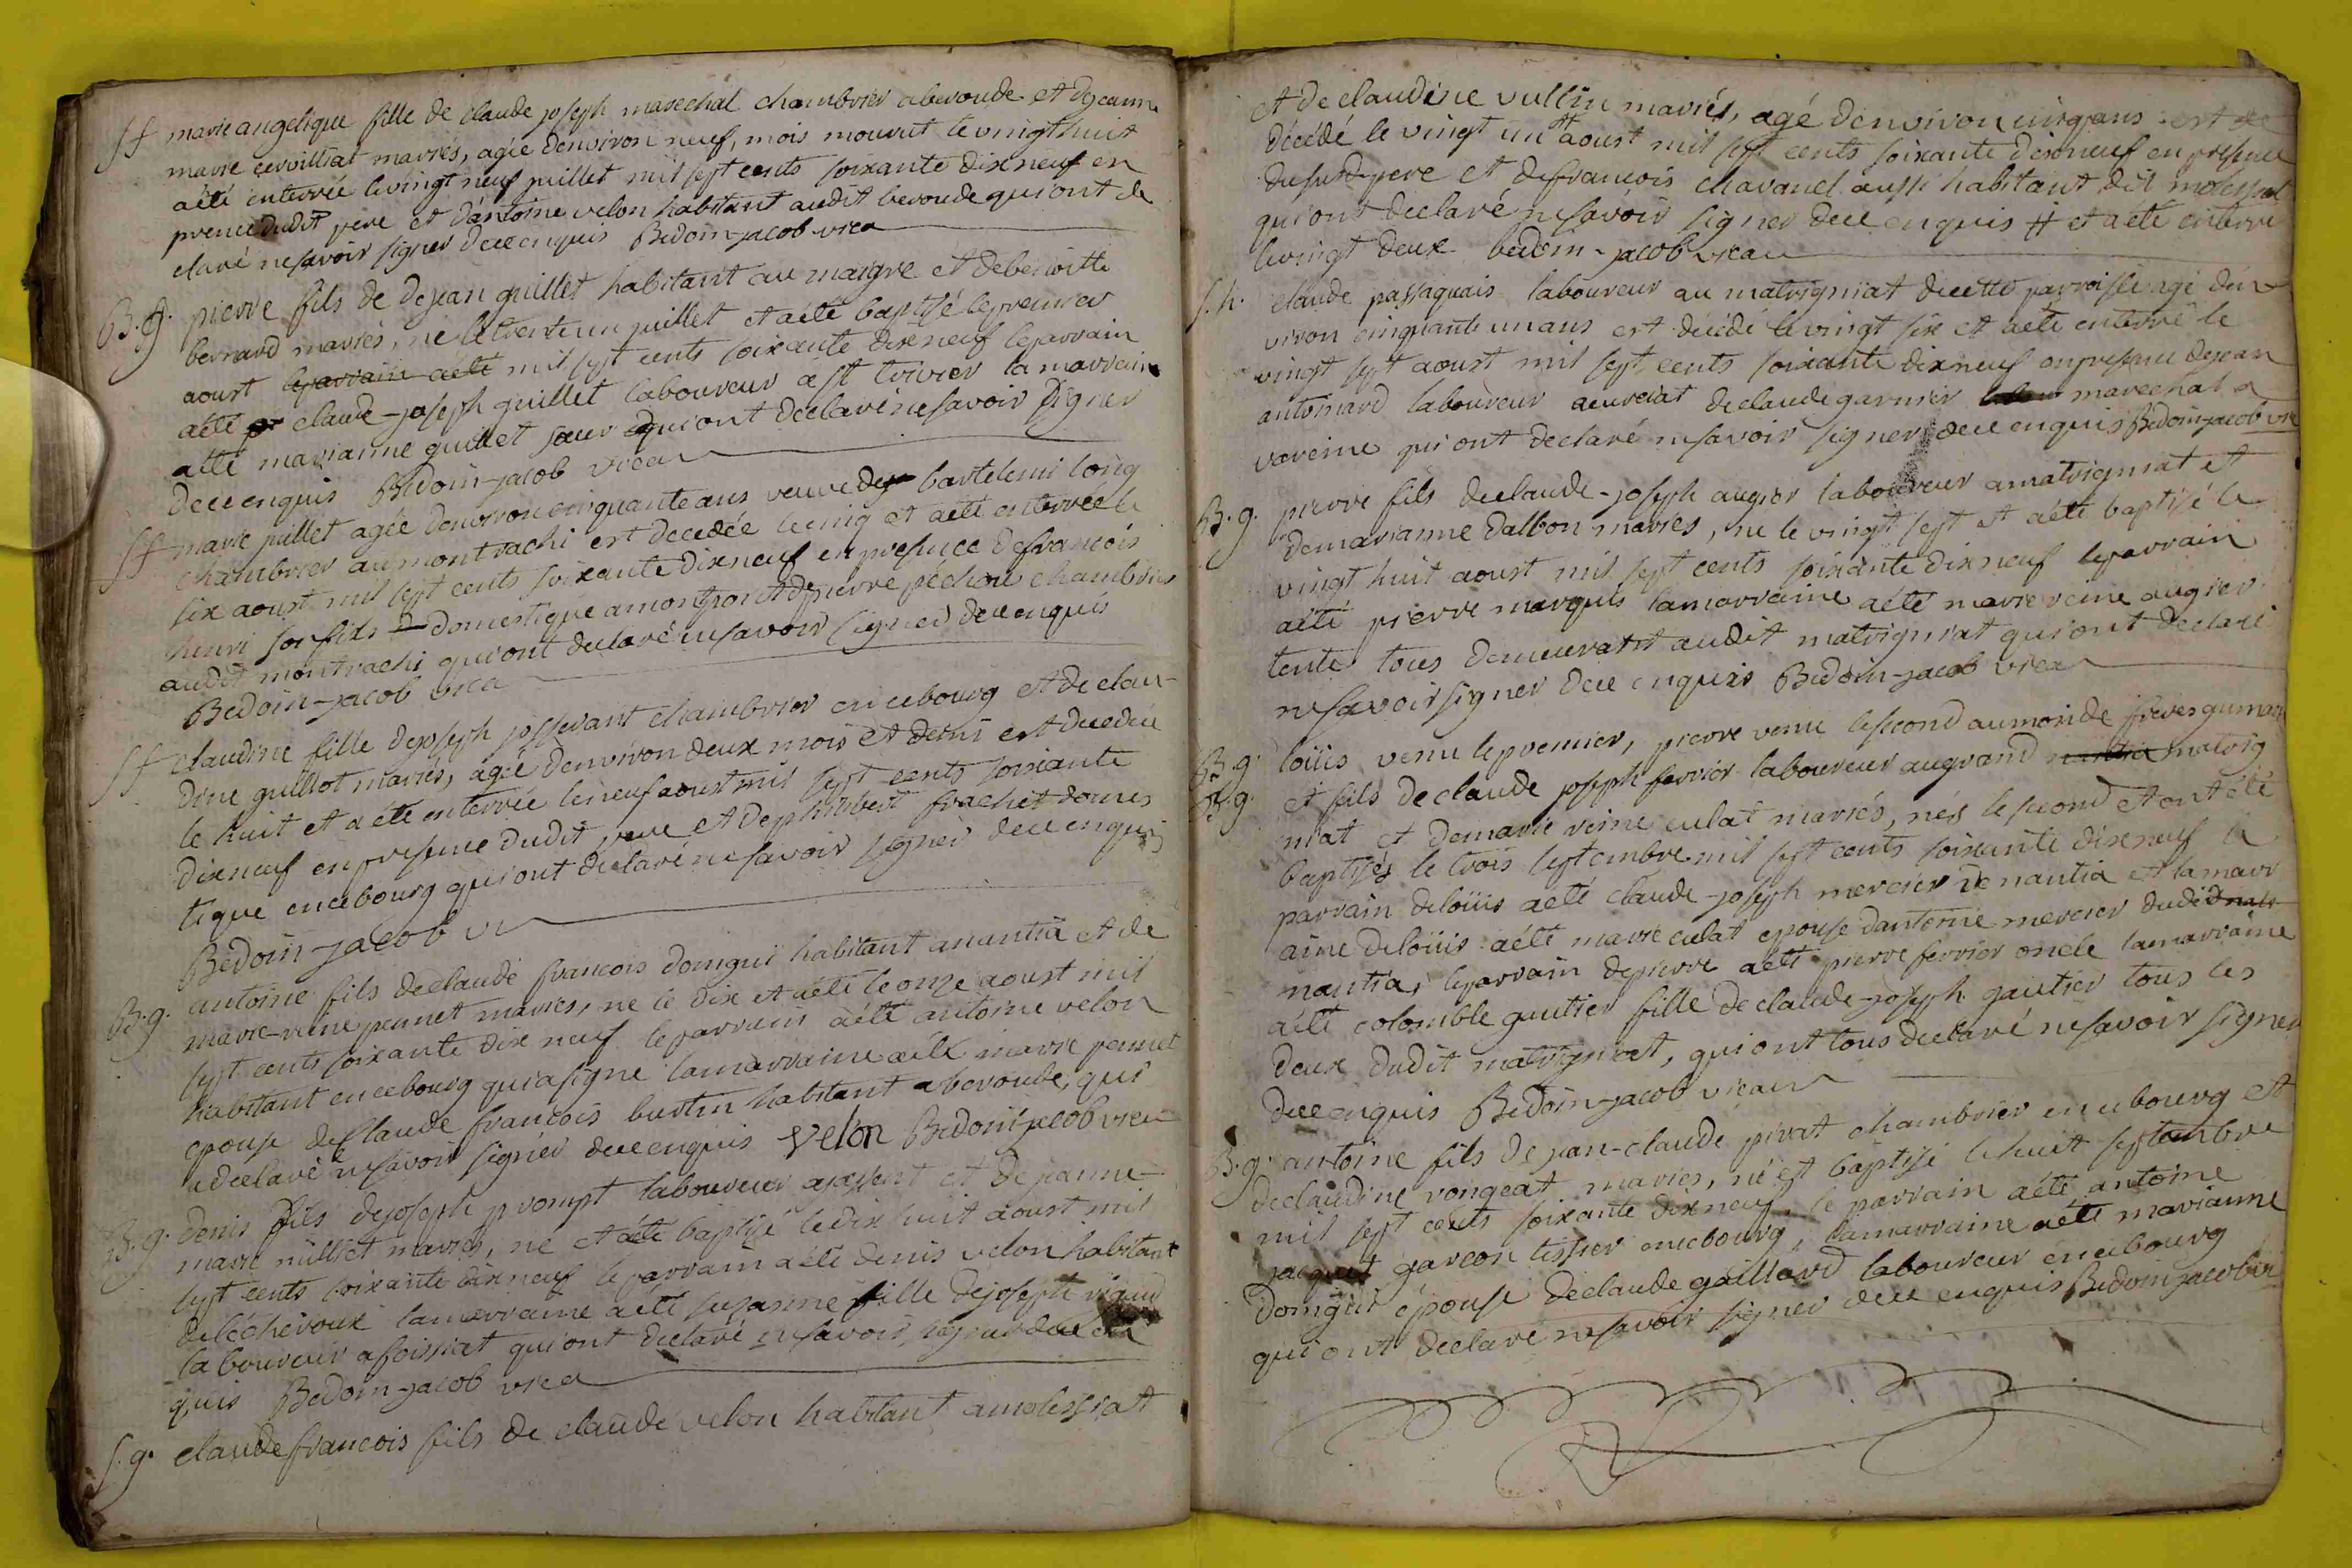 Sf marie angelique fille de claude joseph marechal chambrier a beroude et de jeanne
marie cervilliat mariés, agée denviron neuf, mois mourut le vingt huit
aété enterrée le vingt neuf juillet mil sept cents soixante dix neuf en
prence dudit pere et dantoine velon habitant audit beroude qui ont de
claré ne savoir signer de ce enquis Bedoin-jacob vica
B. g. pierre fils de de jean guillet habitant au maigre et de benoitte
bernard mariés, né le trente un juillet et aété baptisé le premier
aoust le parrain aété mil sept cents soixante dix neuf le parrain
aété claude-joseph guillet laboureur a st trivier la marraine
aété marianne guillet sœur qui ont declaré ne savoir signer
de ce enquis Bedoin-jacob vica
Sf marie juillet agée denviron cinquante ans veuve de bartelemi long
chambrier au montrachi est decedée le cinq et aété enterrée le
six aoust mil sept cents soixante dix neuf en presence de francois
henri son fils domestique a montpont de pierre péchou chambrier
audit montrachi qui ont declaré ne savoir signer de ce enquis
Bedoin-jacob vica
Sf claudine fille de joseph josserant chambrier en ce bourg et de clau-
dine guillot mariés, agée denviron deux mois et demi est decedée
le huit et a été enterrée le neuf aoust mil sept cents soixante
dix neuf en presence dudit pere et de philibert frachet domes
tique en ce bourg qui ont declaré ne savoir signer de ce enquis
Bedoin-jacob v
B. g. antoine fils de claude francois donguit habitant a nantia et de
marie-reine pennet mariés, né le dix et aété le onze aoust mil
sept cents soixante dix neuf le parrain aété antoine velon
habitant en ce bourg qui a signe la marraine aété marie pennet
epouse de claude francois burtin habitant a beroude, qui
a declaré ne savoir signer de ce enquis velon Bedoin-jacob vica
B. g. denis fils de joseph prompt laboureur a jassent et de jeanne-
marie nulliet mariés, né et aété baptisé le dix huit aoust mil
sept cents soixante dix neuf le parrain aété denis velon habitant
de léchéroux la marraine aété suzanne fille de joseph
laboureur a foissiat qui ont declaré ne savoir signer de ce en
quis Bedoin-jacob vica
S. g. claude francois fils de claude velon habitant a molessiat
et de claudine vullin mariés, agé denviron cinq ans est
décédé le vingt un # aoust mil sept cents soixante dix neuf en presence
du susdt pere et de francois chavanel aussi habitant dit molessiat
qui ont declaré ne savoir signer de ce enquis # et a été enterré
le vingt deux bedoin-jacob vica
S. h. claude passaquais laboureur au matrigniat de cette parroisse agé den
viron cinquante un ans est décédé le vingt six et aété enterré le
vingt sept aoust mil sept cents soixante dix neuf en presence de jean
antomard laboureur a curciat de claude garnier marechal a
varenne qui ont declaré ne savoir signer de ce enquis Bedoin-jacob vic
B. g. pierre fils de claude-joseph augier laboureur a matrigniat et
de marianne dalbon mariés, né le vingt sept et aété baptisé le
vingt huit aoust mil sept cents soixante dix neuf le parrain
aété pierre marquis la marraine aété marie reine augier
tente tous demeurant audit matrigniat qui ont declaré
ne savoir signer de ce enquis Bedoin-jacob vica
B. g. loüis venu le premier, pierre venu le second au monde freres gumaux
B. g. et fils de claude joseph ferrier laboureur au grand matrig
niat et de marie reine culat mariés, nés le second et ont été
baptisés le trois septembre mil sept cents soixante dix neuf le
parrain de loüis aété claude-joseph mercier de nantia et la marr
aine de loüis aété marie culat epouse dantoine mercier dudit
nantia, le parrain de pierre aété pierre ferrier oncle la marraine
aété colomble gautier fille de claude-joseph gautier tous les
deux dudit matrigniat, qui ont tous declaré ne savoir signer
de ce enquis Bedoin-jacob vicair
B. g. antoine fils de jean-claude pirat chambrier en ce bourg et
de claudine rongeat mariés, né et baptisé le huit septembre
mil sept cents soixante dix neuf, le parrain aété antoine
garcon tissier en ce bourg, la marraine aété marianne
donguit épouse de claude gaillard laboureur en ce bourg
qui ont declaré ne savoir signer de ce enquis Bedoin-jacob vic